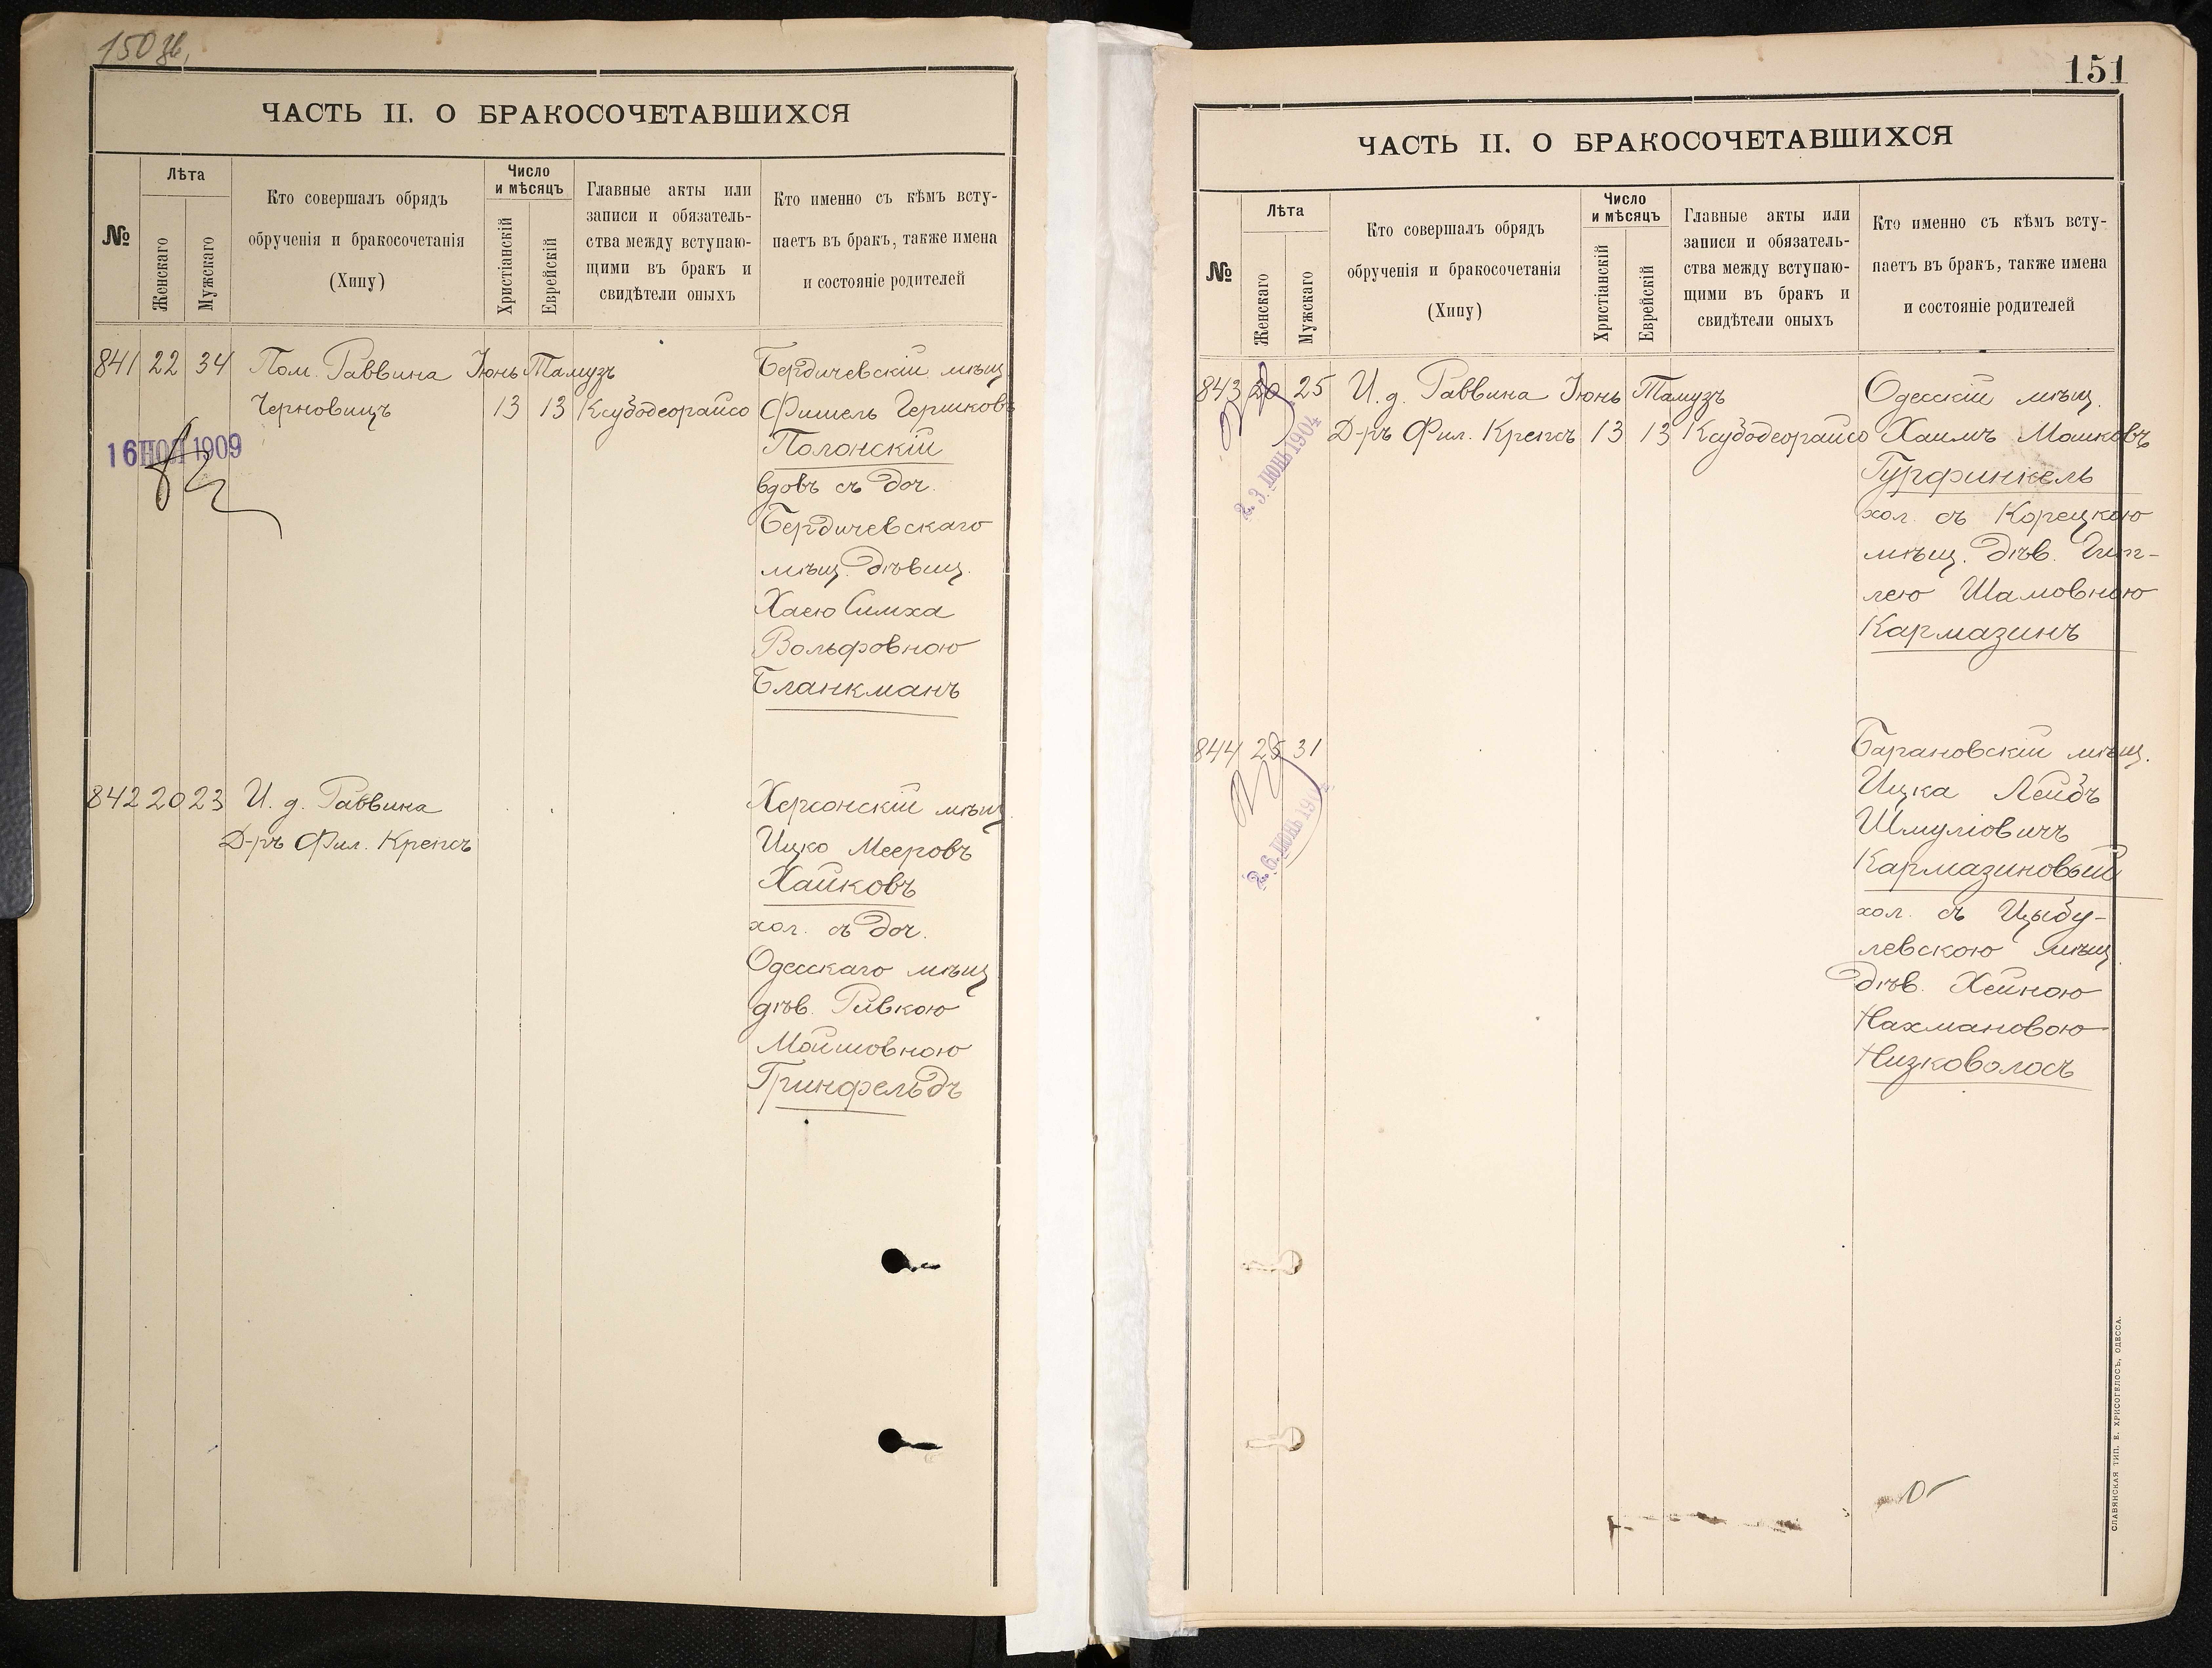 150 зв.
ЧАСТЬ II. О БРАКОСОЧЕТАВШИХСЯ
№
Лѣта
Женскаго
Мужскаго
Кто совершалъ обрядъ
обрученія и бракосочетанія
(Хипу)
Число
и мѣсяцъ
Христіанскій
Еврейскій
Главные акты или
записи и обязатель-
ства между вступаю-
щими въ бракъ и
свидѣтели оныхъ
Кто именно съ кѣмъ всту-
паетъ въ бракъ, также имена
и состояніе родителей
841 22 34 Пом. Раввина Іюнь Тамузъ Бердичевскій мѣщ.
Черновицъ 13 13 Ксубодеорайсо Фишель Гершковъ
16 НОЯ 1909
Полонскій
вдовъ съ доч.
Бердичевскаго
мѣщ. дѣвиц.
Хаею Симха
Вольфовною
Бланкманъ
842 20 23 И. д. Раввина Херсонскій мѣщ.
Д-ръ Фил. Крепсъ Ицко Мееровъ
Хайковъ
хол. съ доч.
Одесскаго мѣщ
дѣв. Ривкою
Мойшовною
Гринфельдъ
151
ЧАСТЬ II. О БРАКОСОЧЕТАВШИХСЯ
№
Лѣта
Женскаго
Мужскаго
Кто совершалъ обрядъ
обрученія и бракосочетанія
(Хипу)
Число
и мѣсяцъ
Христіанскій
Еврейскій
Главные акты или
записи и обязатель-
ства между вступаю-
щими въ бракъ и
свидѣтели оныхъ
Кто именно съ кѣмъ всту-
паетъ въ бракъ, также имена
и состояніе родителей
843 20 25 И. д. Раввина Іюнь Тамузъ Одесскій мѣщ.
Д-ръ Фил. Крепсъ 13 13 Ксубодеорайсо Хаимъ Мошковъ
2.3. ІЮНЬ 1904
Гурфинкель
хол. съ Корецкою
мѣщ. дѣв. Гит-
лею Шамовною
Кармазинъ
844 25 31 Барановскій мѣщ.
Ицка Лейбъ
2.6. ІЮНЬ 190
Шмуліовичъ
Кармазиновый
хол. съ Цыбу-
левскою мѣщ
дѣв. Хейною
Нахмановою
Низковолосъ
СЛАВЯНСКАЯ ТИП. Е. ХРИСОГЕЛОСЪ, ОДЕССА.